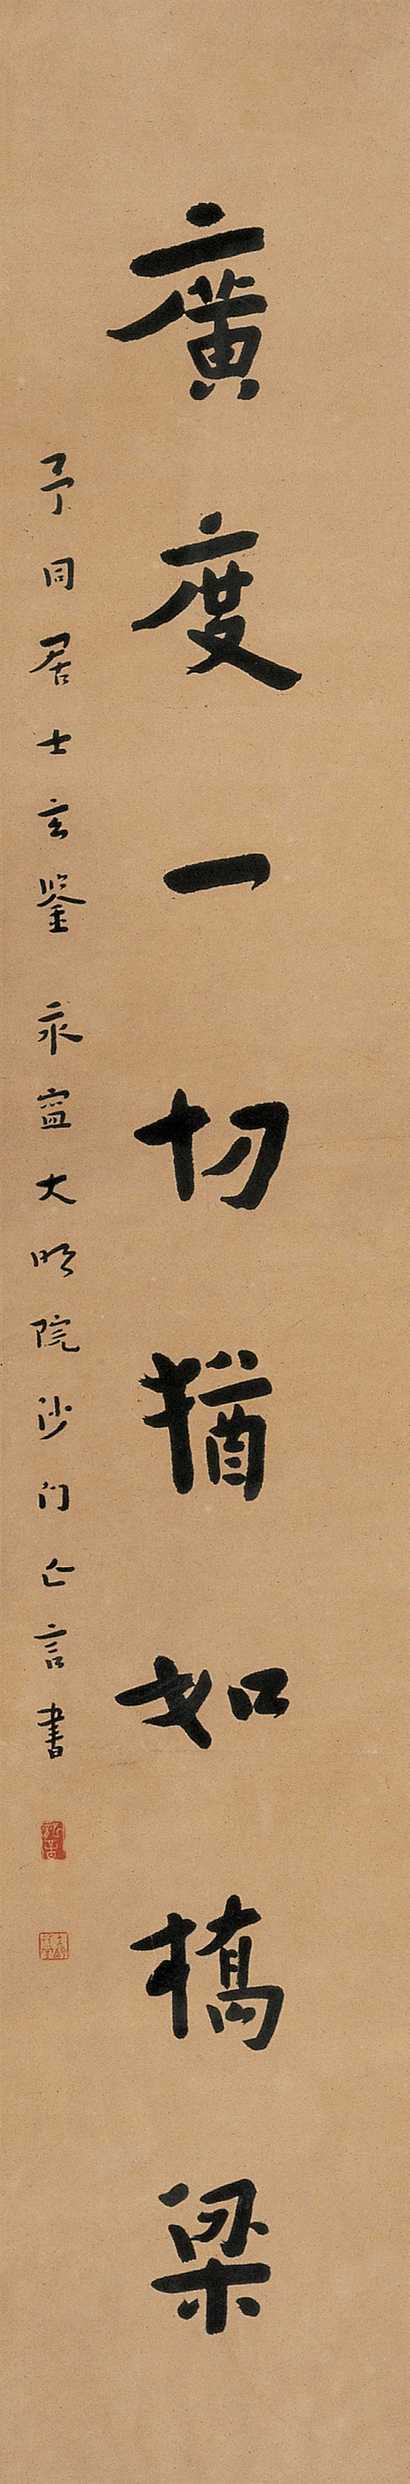 廣度一切猶如橋梁
予同居士玄鉴 永寍大明院沙门亡言書